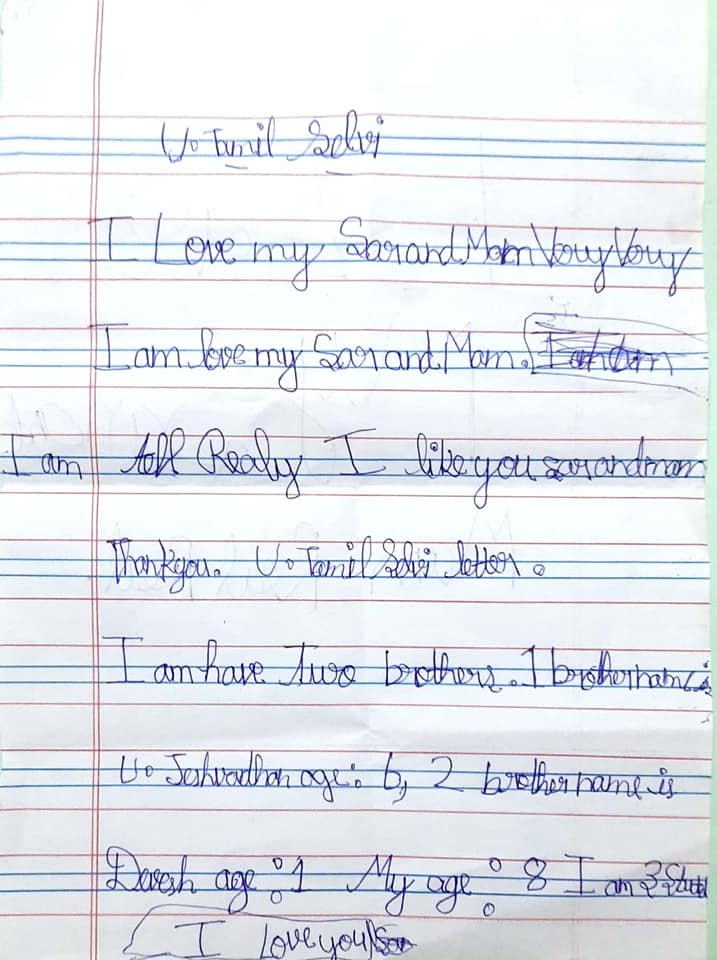 V. Tamil Selvi
I Love my Sar and Mam Vouy Vouy
I am love my Sar and Mam.
I am toff Realy I like you sar and mam
Thank you. V. Tamil Selvi letter.
I am have Two brothers. 1 brother name is
V. Jeshvadhan age: 6, 2 brother name is
Devesh age : 1 My age : 8 I am 3
I Love you